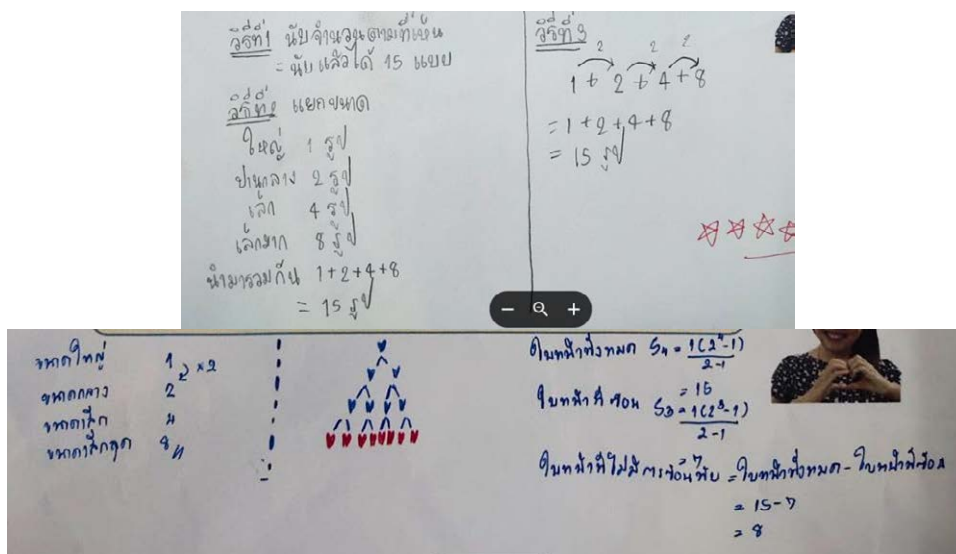 วิธีที่1 นับจำนวนตามที่เห็น
= นับแล้วได้ 15 แบบ
วิธีที่2 แยกขนาด
ใหญ่ 1 รูป
ปานกลาง 2 รูป
เล็ก 4 รูป
เล็กมาก 8 รูป
นำมารวมกัน 1+2+4+8
= 15 รูป
วิธีที่3
2 2 2
1 + 2 + 4 + 8
= 1+2+4+8
= 15 รูป
ขนาดใหญ่ 1
×2
ขนาดกลาง 2
ขนาดเล็ก 4
ขนาดเล็กสุด 8
ใบหน้าทั้งหมด S₄ = 1(2⁴-1)
2-1
= 15
ใบหน้าที่ซ้อน S₃ = 1(2³-1)
2-1
= 7
ใบหน้าที่ไม่มีการซ้อนทับ = ใบหน้าทั้งหมด - ใบหน้าที่ซ้อน
= 15-7
= 8